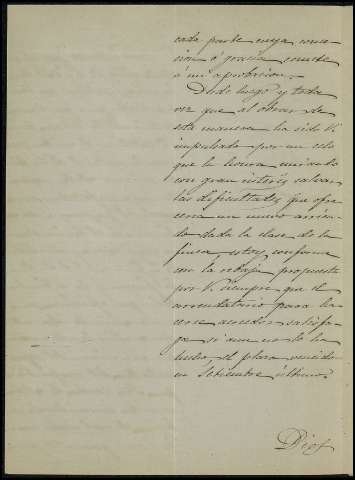 cada parte cuya conce-
sion ó gracia somete
á mi aprobacion.
Desde luego y toda
vez que al obrar de
esta manera ha sido V.
impulsado por un celo
que le honra mirando
con gran interés salvar
las dificultades que ofre
ceria un nuevo arrien-
do dada la clase de la
finca, estoy conforme
con la rebaja propuesta
por V. siempre que el
arrendatario para ha-
cerse acreedor satisfa-
ga si aun no lo ha
hecho, el plazo vencido
en Setiembre último.
Dios